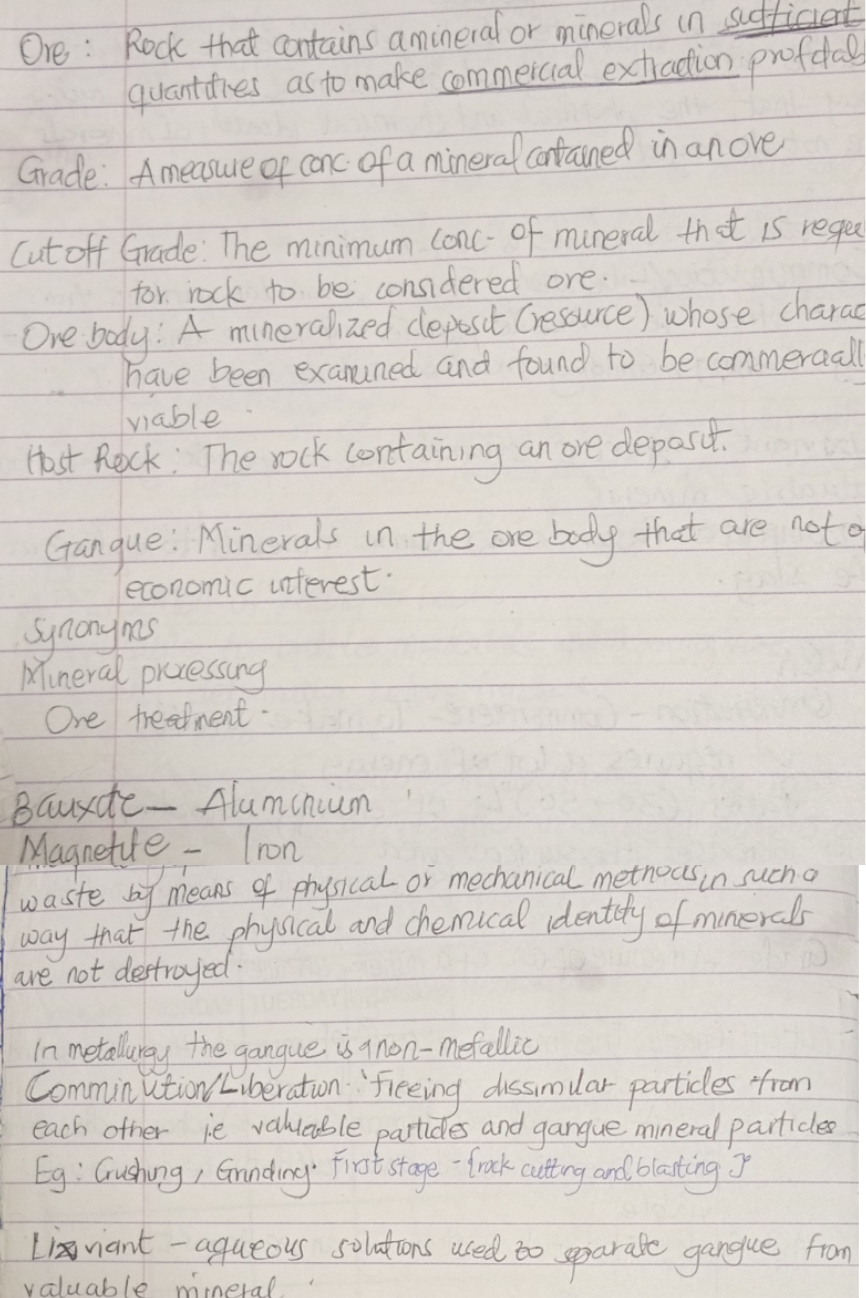 Ore : Rock that contains a mineral or minerals in sufficient
quantities as to make commercial extraction profitab
Grade: A measure of conc. of a mineral contained in an ore
Cut off Grade: The minimum conc- of mineral that is requ
for rock to be considered ore.
Ore body: A mineralized deposit (resource) whose charac
have been examined and found to be commercially
viable
Host Rock: The rock containing an ore deposit.
Gangue: Minerals in the ore body that are not o
economic interest.
Synonyms
Mineral processing
Ore treatment.
Bauxite - Aluminium
Magnetite - Iron
waste by means of physical or mechanical methods in such a
way that the physical and chemical identity of minerals
are not destroyed.
In metallurgy the gangue is a non-metallic
Comminution/Liberation: Freeing dissimilar particles from
each other ie valuable particles and gangue mineral particles
Eg: Crushing, Grinding. First stage - {rock cutting and blasting}
Lixiviant - aqueous solutions used to separate gangue from
valuable mineral.